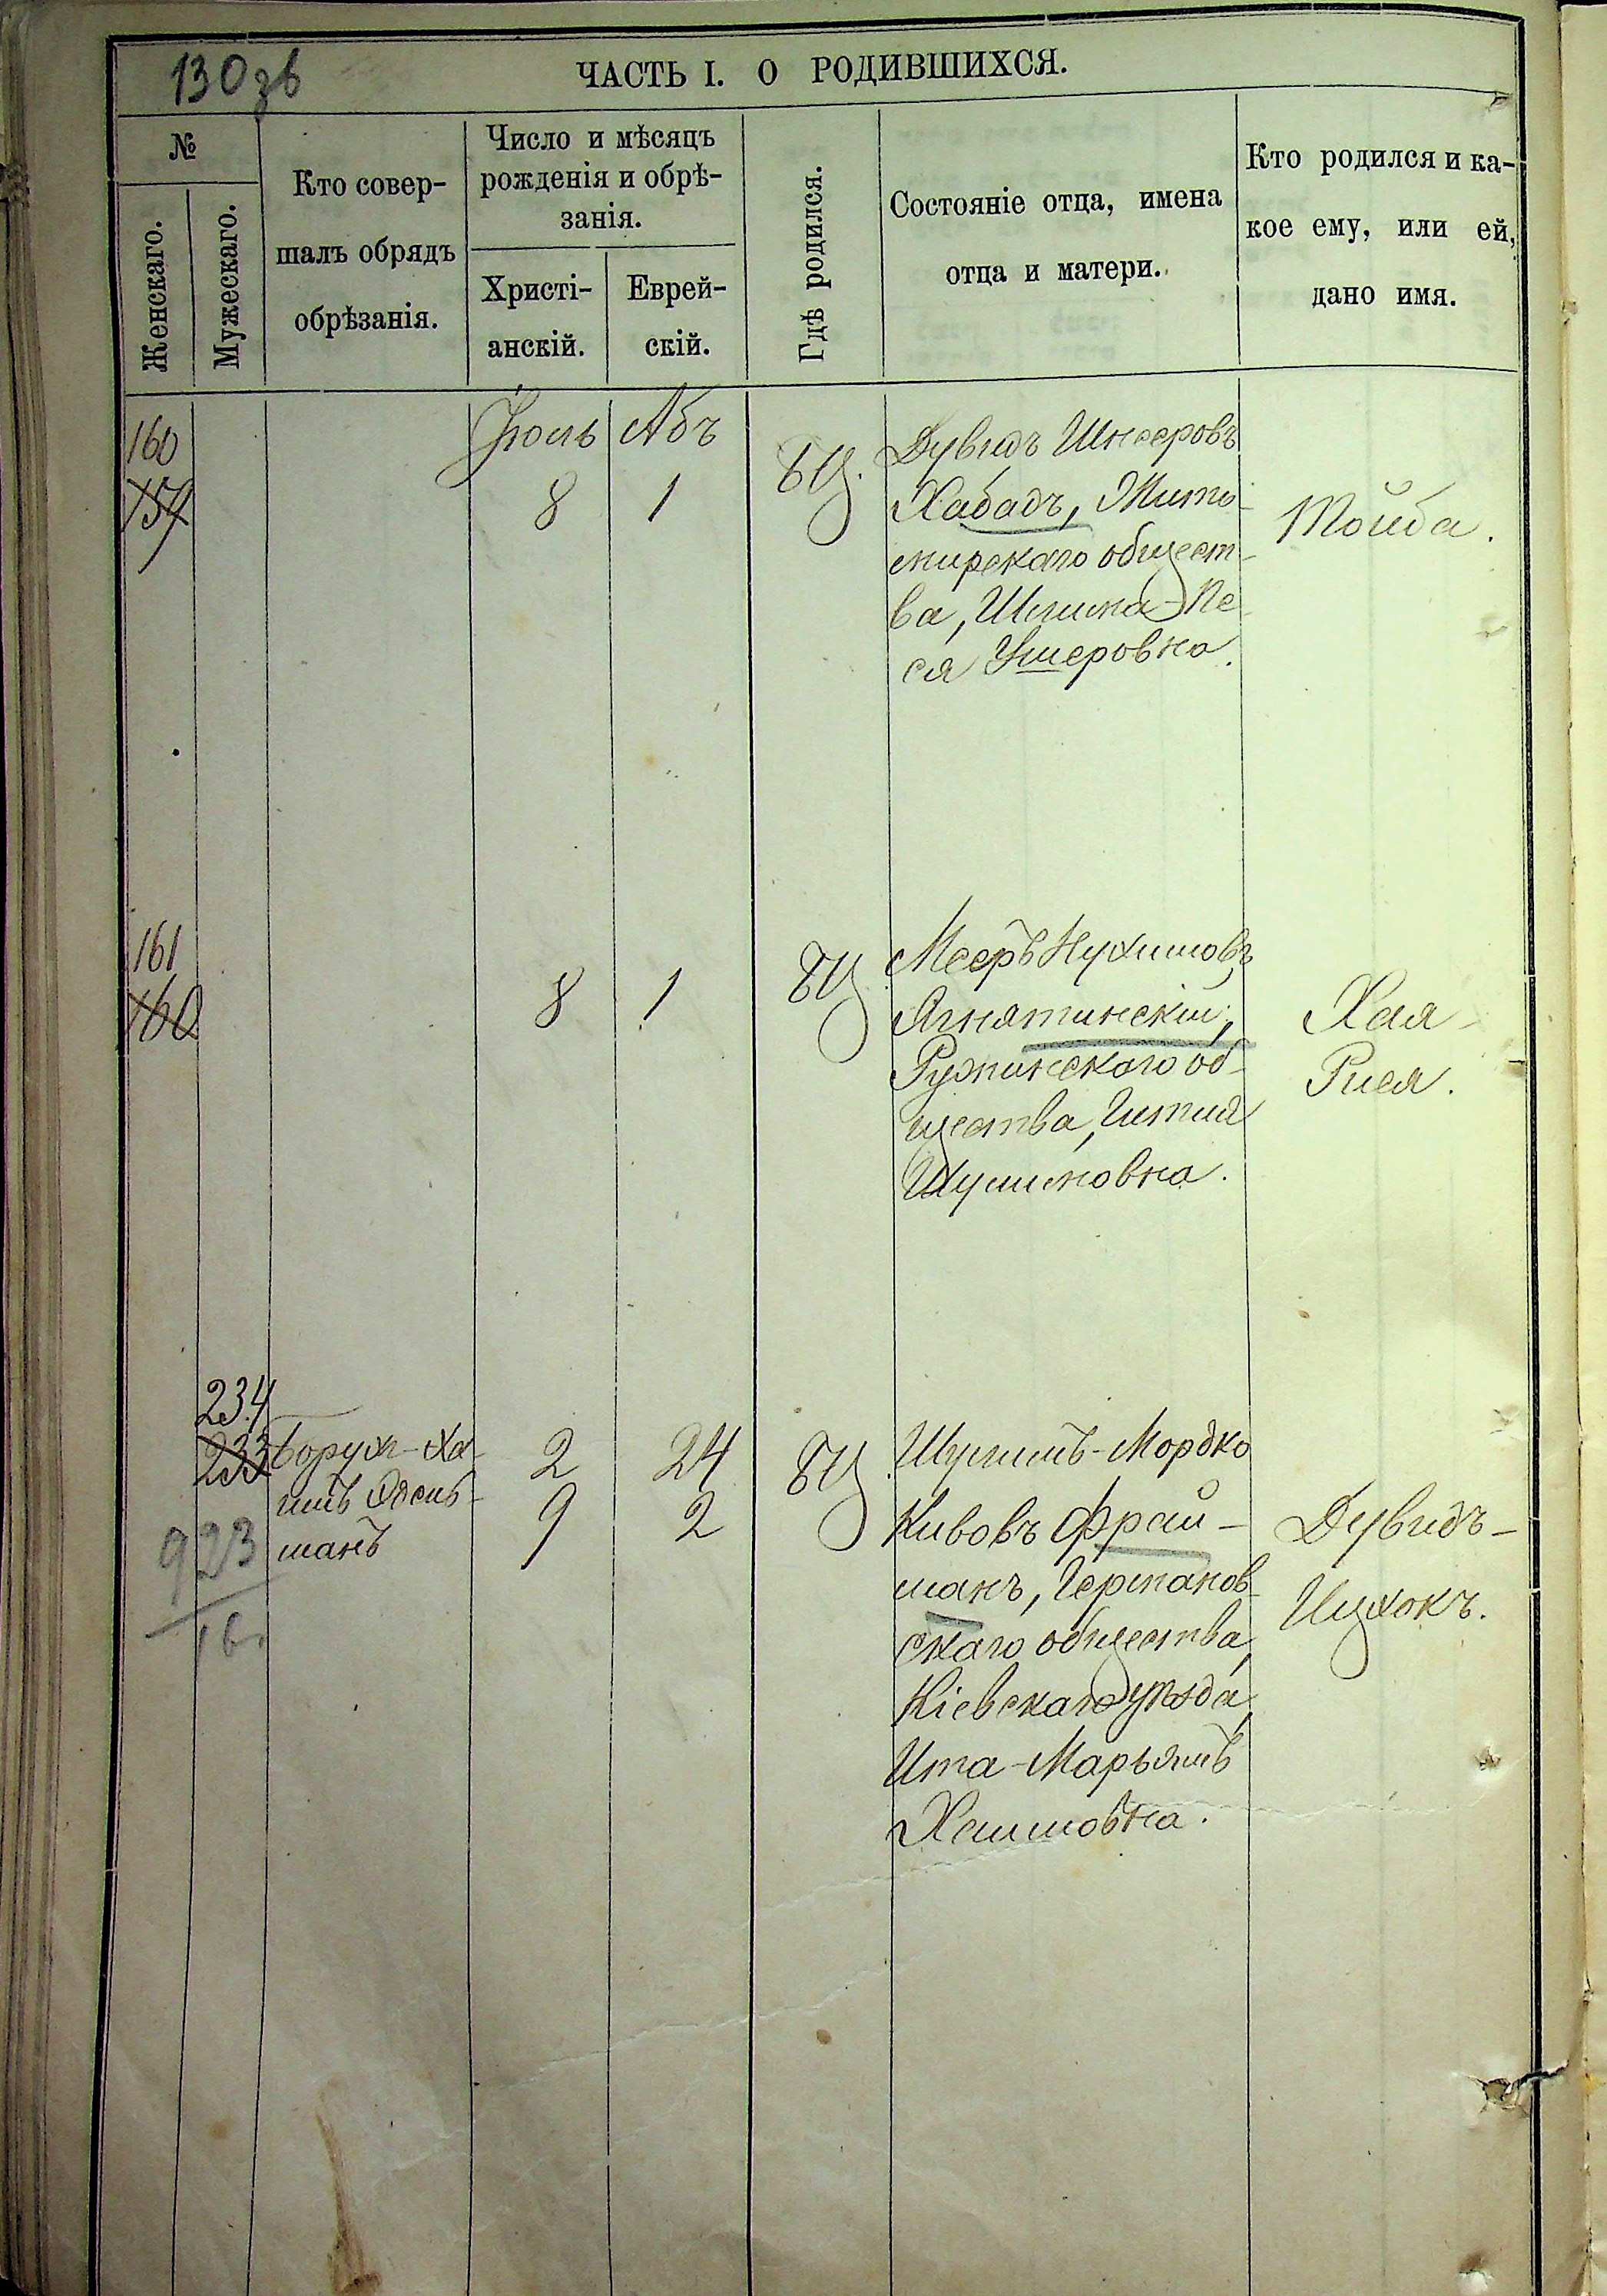 130 зв
ЧАСТЬ I. О РОДИВШИХСЯ.
№
Женскаго.
Мужескаго.
Кто совер-
шалъ обрядъ
обрѣзанія.
Число и мѣсяцъ
рожденія и обрѣ-
занія.
Христі-
анскій.
Еврей-
скій.
Гдѣ родился.
Состояніе отца, имена
отца и матери.
Кто родился и ка-
кое ему, или ей,
дано имя.
Іюль Абъ
160
159
8 1
БЦ.
Дувидъ Шнееровъ
Хабадъ, Жито-
мирскаго общест-
ва, Шлима-Пе-
ся Ушеровна.
Тойба.
161
160
8 1
БЦ.
Мееръ Нухимовъ
Ягнятинскій,
Ружинскаго об-
щества, Гитля
Шулимовна.
Хая-
Рися.
234
233
923
Борух-Ха-
имъ
манъ
2 24
9 2
БЦ.
Шулимъ-Мордко
Кивовъ Фрай-
манъ, Германов-
скаго общества,
Кіевскаго уѣзда,
Ита-Марьямъ
Хаимовна.
Дувидъ-
Ицхокъ.